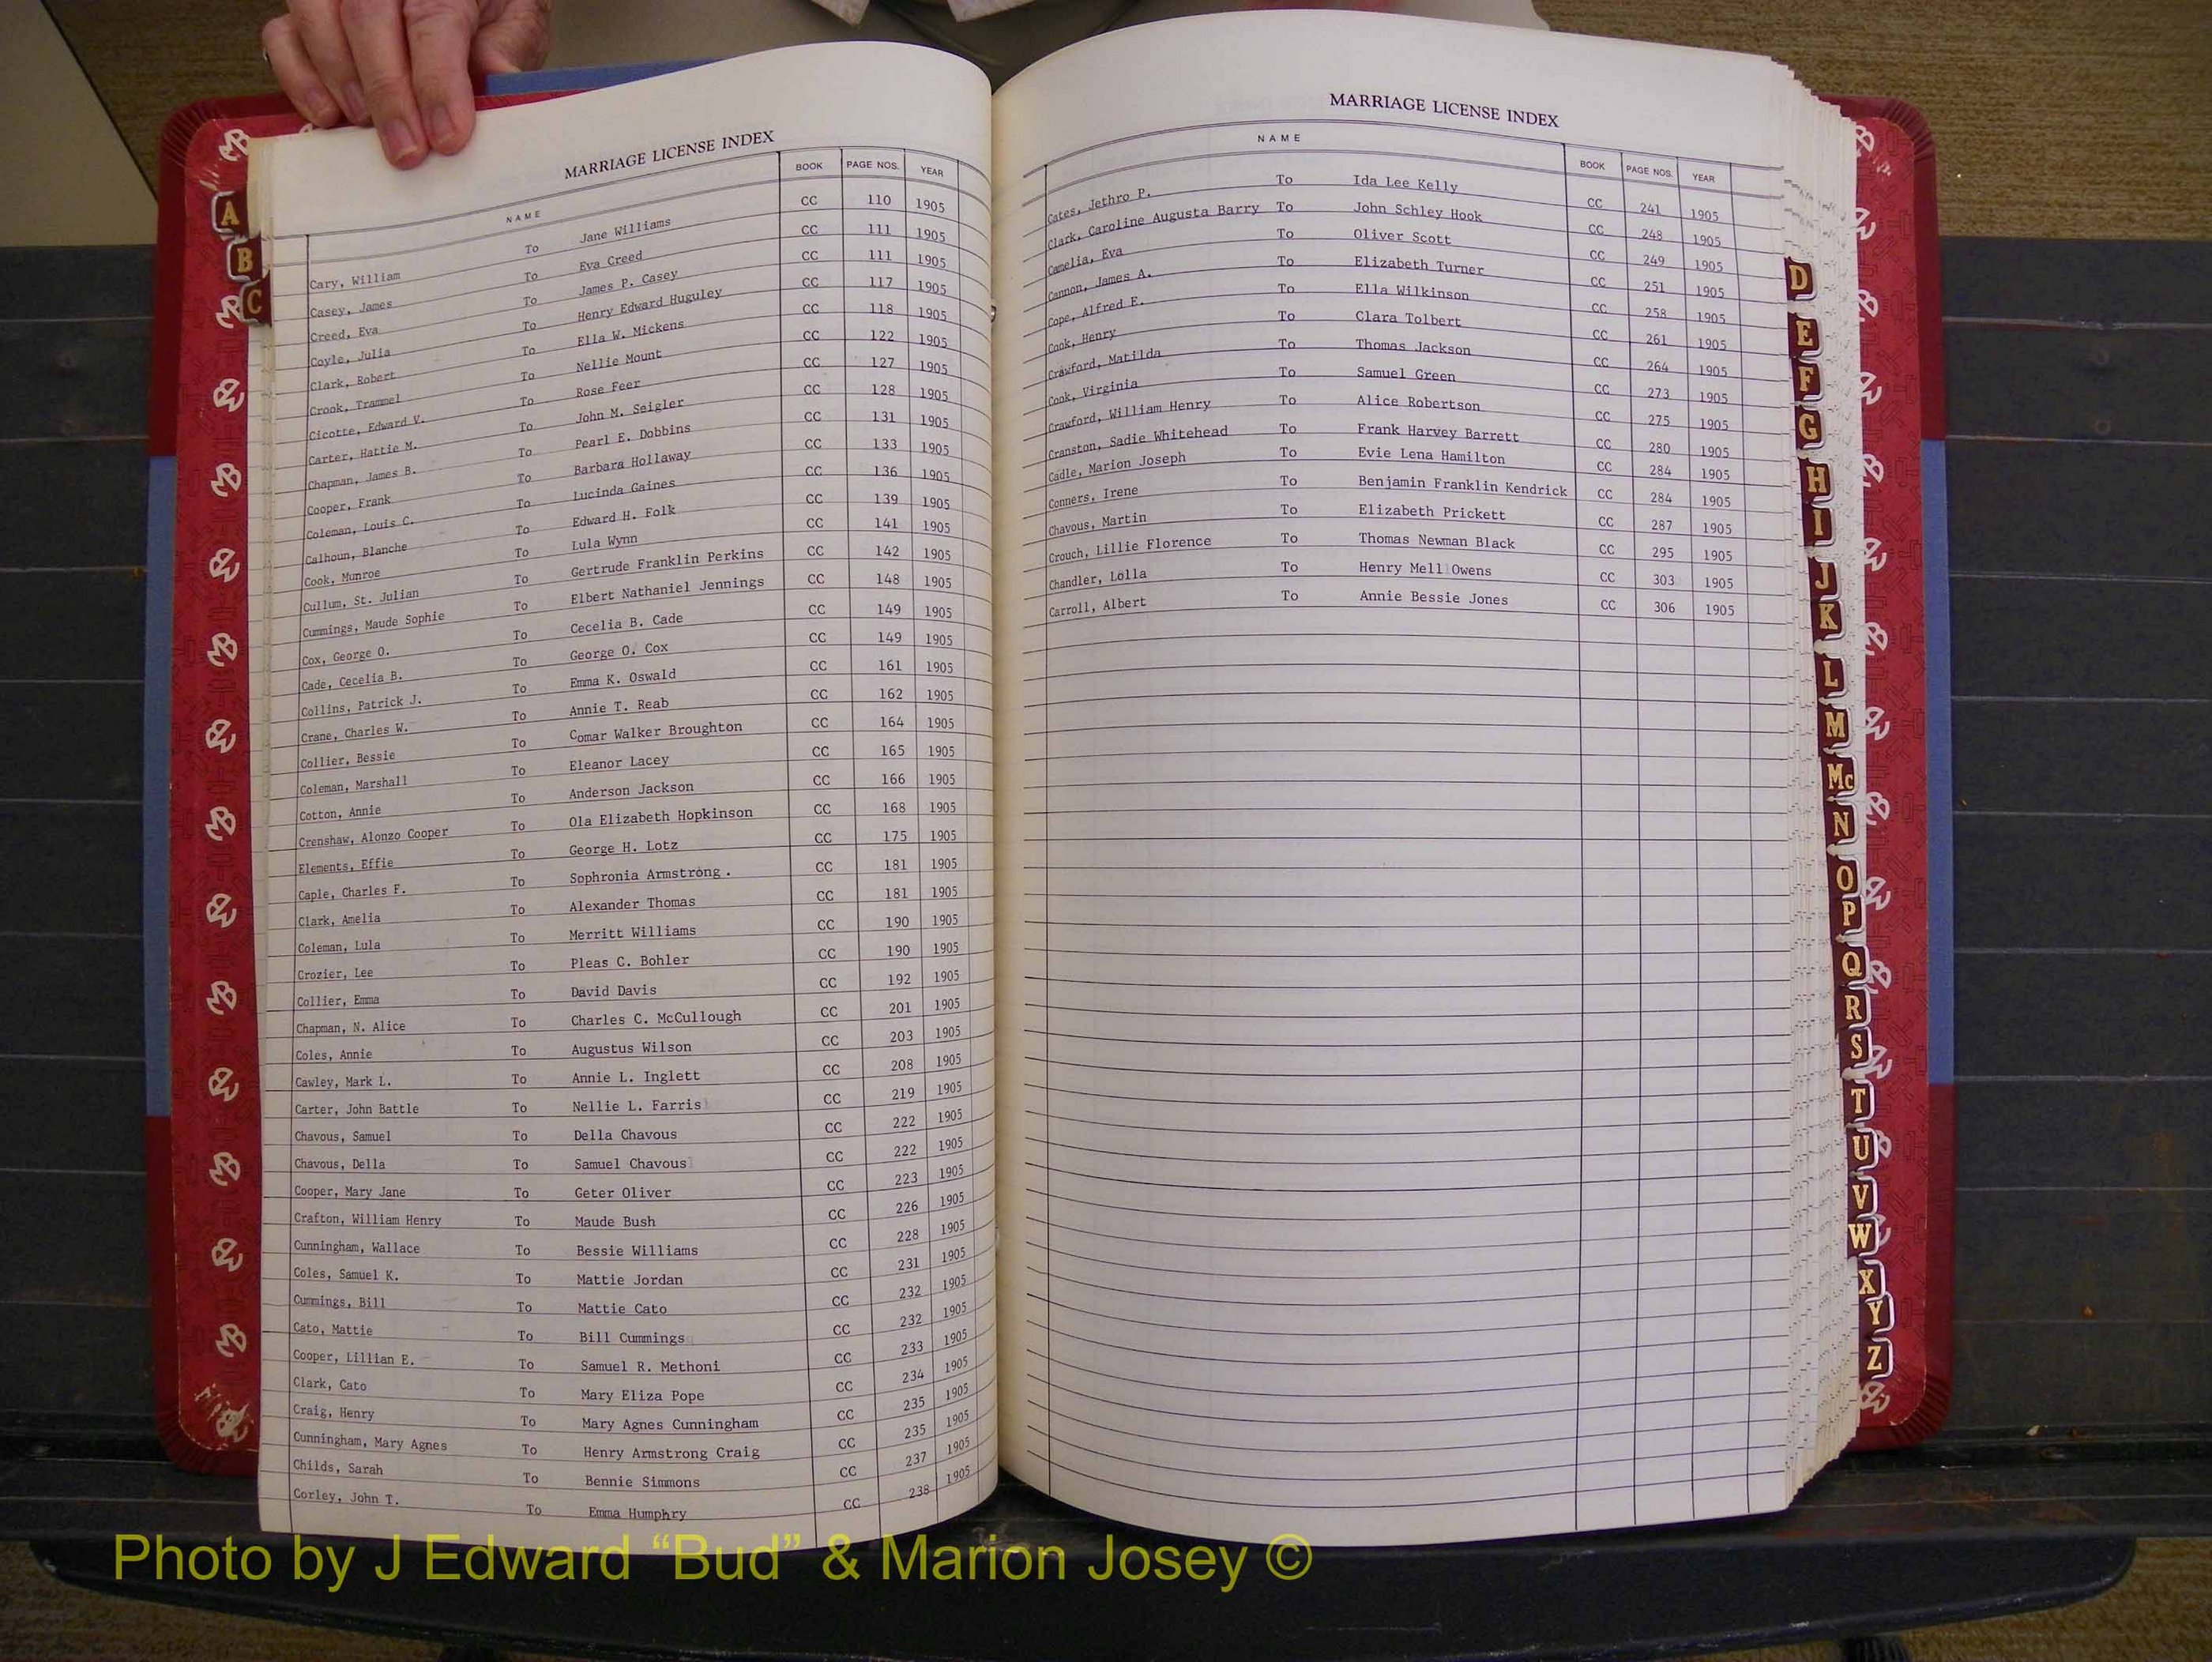 MARRIAGE LICENSE INDEX
NAME BOOK PAGE NOS. YEAR
Cary, William To Jane Williams CC 110 1905
Casey, James To Eva Creed CC 111 1905
Creed, Eva To James P. Casey CC 111 1905
Coyle, Julia To Henry Edward Huguley CC 117 1905
Clark, Robert To Ella W. Mickens CC 118 1905
Crook, Trammel To Nellie Mount CC 122 1905
Cicotte, Edward V. To Rose Feer CC 127 1905
Carter, Hattie M. To John M. Seigler CC 128 1905
Chapman, James B. To Pearl E. Dobbins CC 131 1905
Cooper, Frank To Barbara Hollaway CC 133 1905
Coleman, Louis C. To Lucinda Gaines CC 136 1905
Calhoun, Blanche To Edward H. Folk CC 139 1905
Cook, Munroe To Lula Wynn CC 141 1905
Cullum, St. Julian To Gertrude Franklin Perkins CC 142 1905
Cummings, Maude Sophie To Elbert Nathaniel Jennings CC 148 1905
Cox, George O. To Cecelia B. Cade CC 149 1905
Cade, Cecelia B. To George O. Cox CC 149 1905
Collins, Patrick J. To Emma K. Oswald CC 161 1905
Crane, Charles W. To Annie T. Reab CC 162 1905
Collier, Bessie To Comar Walker Broughton CC 164 1905
Coleman, Marshall To Eleanor Lacey CC 165 1905
Cotton, Annie To Anderson Jackson CC 166 1905
Crenshaw, Alonzo Cooper To Ola Elizabeth Hopkinson CC 168 1905
Elements, Effie To George H. Lotz CC 175 1905
Caple, Charles F. To Sophronia Armstrong. CC 181 1905
Clark, Amelia To Alexander Thomas CC 181 1905
Coleman, Lula To Merritt Williams CC 190 1905
Crozier, Lee To Pleas C. Bohler CC 190 1905
Collier, Emma To David Davis CC 192 1905
Chapman, N. Alice To Charles C. McCullough CC 201 1905
Coles, Annie To Augustus Wilson CC 203 1905
Cawley, Mark L. To Annie L. Inglett CC 208 1905
Carter, John Battle To Nellie L. Farris CC 219 1905
Chavous, Samuel To Della Chavous CC 222 1905
Chavous, Della To Samuel Chavous CC 222 1905
Cooper, Mary Jane To Geter Oliver CC 223 1905
Crafton, William Henry To Maude Bush CC 226 1905
Cunningham, Wallace To Bessie Williams CC 228 1905
Coles, Samuel K. To Mattie Jordan CC 231 1905
Cummings, Bill To Mattie Cato CC 232 1905
Cato, Mattie To Bill Cummings CC 232 1905
Cooper, Lillian E. To Samuel R. Methoni CC 233 1905
Clark, Cato To Mary Eliza Pope CC 234 1905
Craig, Henry To Mary Agnes Cunningham CC 235 1905
Cunningham, Mary Agnes To Henry Armstrong Craig CC 235 1905
Childs, Sarah To Bennie Simmons CC 237 1905
Corley, John T. To Emma Humphry CC 238 1905
MARRIAGE LICENSE INDEX
NAME BOOK PAGE NOS. YEAR
Cates, Jethro P. To Ida Lee Kelly CC 241 1905
Clark, Caroline Augusta Barry To John Schley Hook CC 248 1905
Camelia, Eva To Oliver Scott CC 249 1905
Cannon, James A. To Elizabeth Turner CC 251 1905
Cope, Alfred E. To Ella Wilkinson CC 258 1905
Cook, Henry To Clara Tolbert CC 261 1905
Crawford, Matilda To Thomas Jackson CC 264 1905
Cook, Virginia To Samuel Green CC 273 1905
Crawford, William Henry To Alice Robertson CC 275 1905
Cranston, Sadie Whitehead To Frank Harvey Barrett CC 280 1905
Cadle, Marion Joseph To Evie Lena Hamilton CC 284 1905
Conners, Irene To Benjamin Franklin Kendrick CC 284 1905
Chavous, Martin To Elizabeth Prickett CC 287 1905
Crouch, Lillie Florence To Thomas Newman Black CC 295 1905
Chandler, Lolla To Henry Mell Owens CC 303 1905
Carroll, Albert To Annie Bessie Jones CC 306 1905
A
B
C
D
E
F
G
H
I
J
K
L
M
Mc
N
O
P
Q
R
S
T
U
V
W
X
Y
Z
Photo by J Edward “Bud” & Marion Josey ©